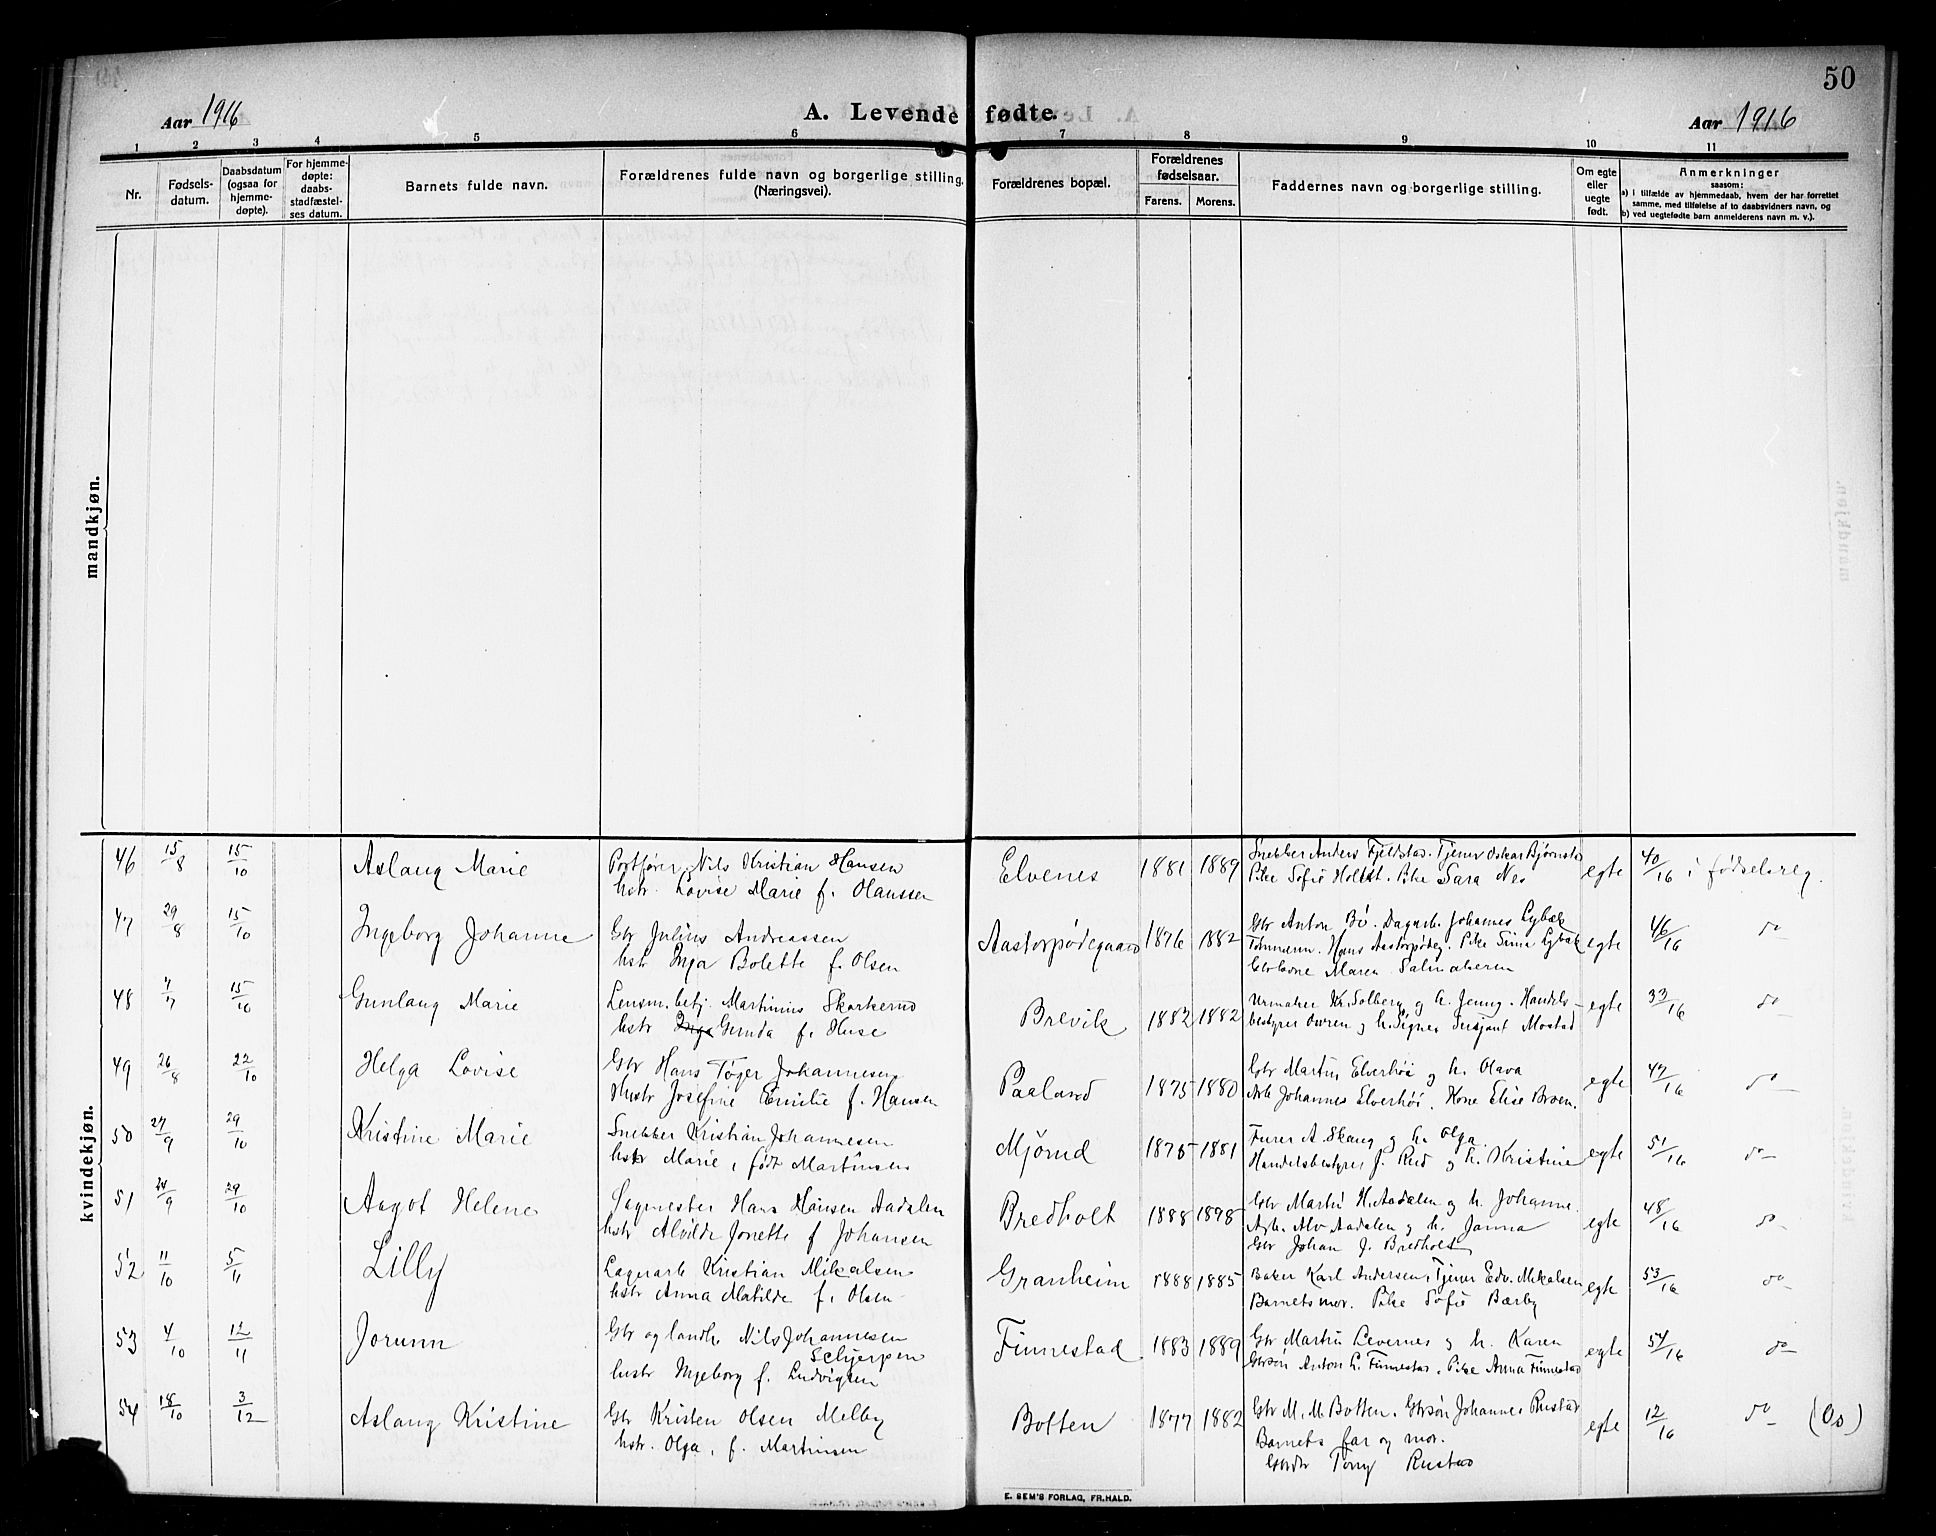 50
Aar 1916
A. Levende fødte.
Aar 1916
1 2 3 4 5 6 7 8 9 10 11
Nr.
Fødsels-
datum.
Daabsdatum
(ogsaa for
hjemme-
døpte).
For hjemme-
døpte:
daabs-
stadfæstel-
ses datum.
Barnets fulde navn.
Forældrenes fulde navn og borgerlige stilling.
(Næringsvei).
Forældrenes bopæl.
Forældrenes
fødselsaar.
Farens. Morens.
Faddernes navn og borgerlige stilling.
Om egte
eller
uegte
født.
Anmerkninger
saasom:
a) i tilfælde av hjemmedaab, hvem der har forrettet
samme, med tilføielse af to daabsvidners navn, og
b) ved uegtefødte barn anmelderens navn m. v.).
mandkjøn.
kvindekjøn.
46 15/8 15/10 Aslaug Marie
Portfører Nils Kristian Hansen
hstr. Lovise Marie f. Olaussen
Elvenes 1881 1889
Snekker Anders Fjeldstad. Tjener Oskar Bjørnstad
Pike Sofie Holtet. Pike Sara Nes
egte 40/16 i fødselsreg.
47 29/8 15/10 Ingeborg Johanne
Gbr Julius Andreassen
hstr Inga Bolette f. Olsen
Aastorpødegaard 1876 1882
Gbr Anton Bø. Dagarb. Johannes Lybæk
Tømmerm. Hans Aastorpødeg. Pike Lybæk
Maren
egte 46/16 do
48 7/7 15/10 Gunlaug Marie
Lensm. betj. Martinius Skorkerud
hstr Inga Gunda f. Huse
Brevik 1882 1882
Urmaker Kr. Solberg og h. Jenny. Handels-
bestyrer Owren og h. Signe. Sersjant Mostad
egte 33/16 do
49 26/8 22/10 Helga Lovise
Gbr Hans Tøger Johannesen
Hustr Josefine Emilie f. Hansen
Paaland 1875 1880
Gbr Martin Elverhøi og h. Olava
Arb Johannes Elverhøi. Kone Elise Broen.
egte 47/16 do
50 27/9 29/10 Kristine Marie
Snekker Kristian Johannesen
hstr Marie, født Martinsen
Mjørud 1875 1881
Furer A. Skaug og h. Olga.
Handelsbestyrer J. Rud og h. Kristine
egte 51/16 do
51 24/9 29/10 Aagot Helene
Sagmester Hans Hansen Aadalen
hstr Alvilde Jonette f Johansen
Bredholt 1888 1878
Gbr Martin H. Aadalen og h. Johanne.
Agb. Alv Aadalen og h. Janna
Gbr Johan J. Bredholt
egte 48/16 do
52 11/10 5/11 Lilly
Lagerarb Kristian Mikalsen
hstr Anna Matilde f. Olsen
Granheim 1888 1885
Baker Karl Andersen, Tjener Edv. Mikalsen
Barnets mor. Pike Sofie Bærby
egte 53/16 do
53 4/10 12/11 Jorunn
Gbr og landh. Nils Johannesen
Schjerpen
hustr Ingeborg f. Ludvigsen
Finnestad 1883 1889
Gbr Martin Levernes og h. Karen
Gbrsøn Anton L. Finnestad. Pike Anna Finnestad
egte 54/16 do
54 18/10 3/12 Aslaug Kristine
Gbr Kristen Olsen Melby
hstr. Olga, f. Martinsen
Botten 1877 1882
Gbr M. M Botten. Gbrsøn Johannes Rustad
Barnets far og mor.
Gbrdtr Tony Rustad
egte 12/16 do (Os)
E. SEM'S FORLAG, FR.HALD.